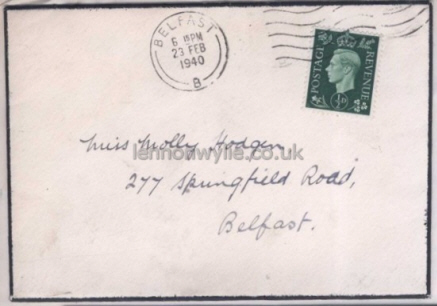 BELFAST
6. 15 PM
23 FEB
1940
B
POSTAGE
REVENUE
½D
Miss Molly Hodgen,
lennonwylie.co.uk
277 Springfield Road,
Belfast.